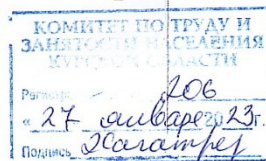 КОМИТЕТ ПО ТРУДУ И
ЗАНЯТОСТИ НАСЕЛЕНИЯ
КУРСКОЙ ОБЛАСТИ
206
« 27 января 2023г.
Подпись